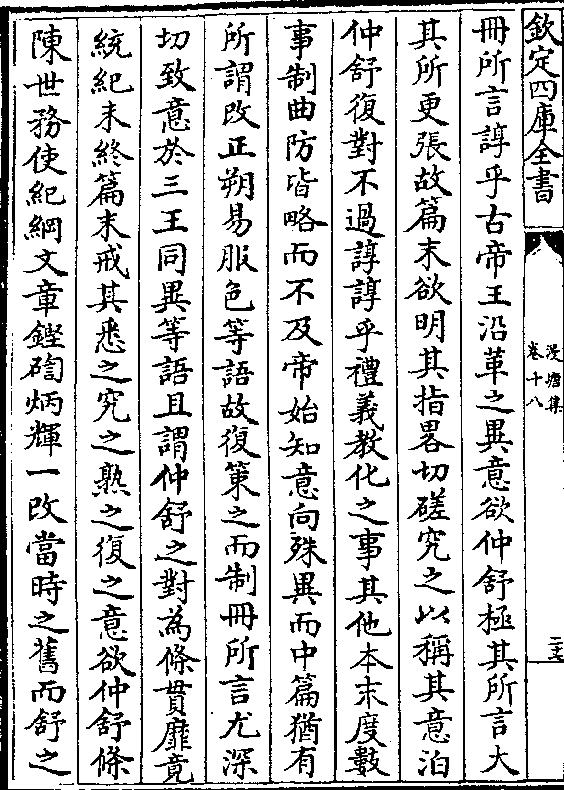 欽定四庫全書
漫塘集
卷十八
二十六
冊所言諄乎古帝王沿革之異意欲仲舒極其所言大
其所更張故篇末欲明其指畧切磋究之以稱其意洎
仲舒復對不過諄諄乎禮義教化之事其他本末度數
事制曲防皆略而不及帝始知意向殊異而中篇猶有
所謂改正朔易服色等語故復策之而制冊所言尤深
切致意於三王同異等語且謂仲舒之對為條貫靡竟
統紀未終篇末戒其悉之究之熟之復之意欲仲舒條
陳世務使紀綱文章鏗鍧炳輝一改當時之舊而舒之